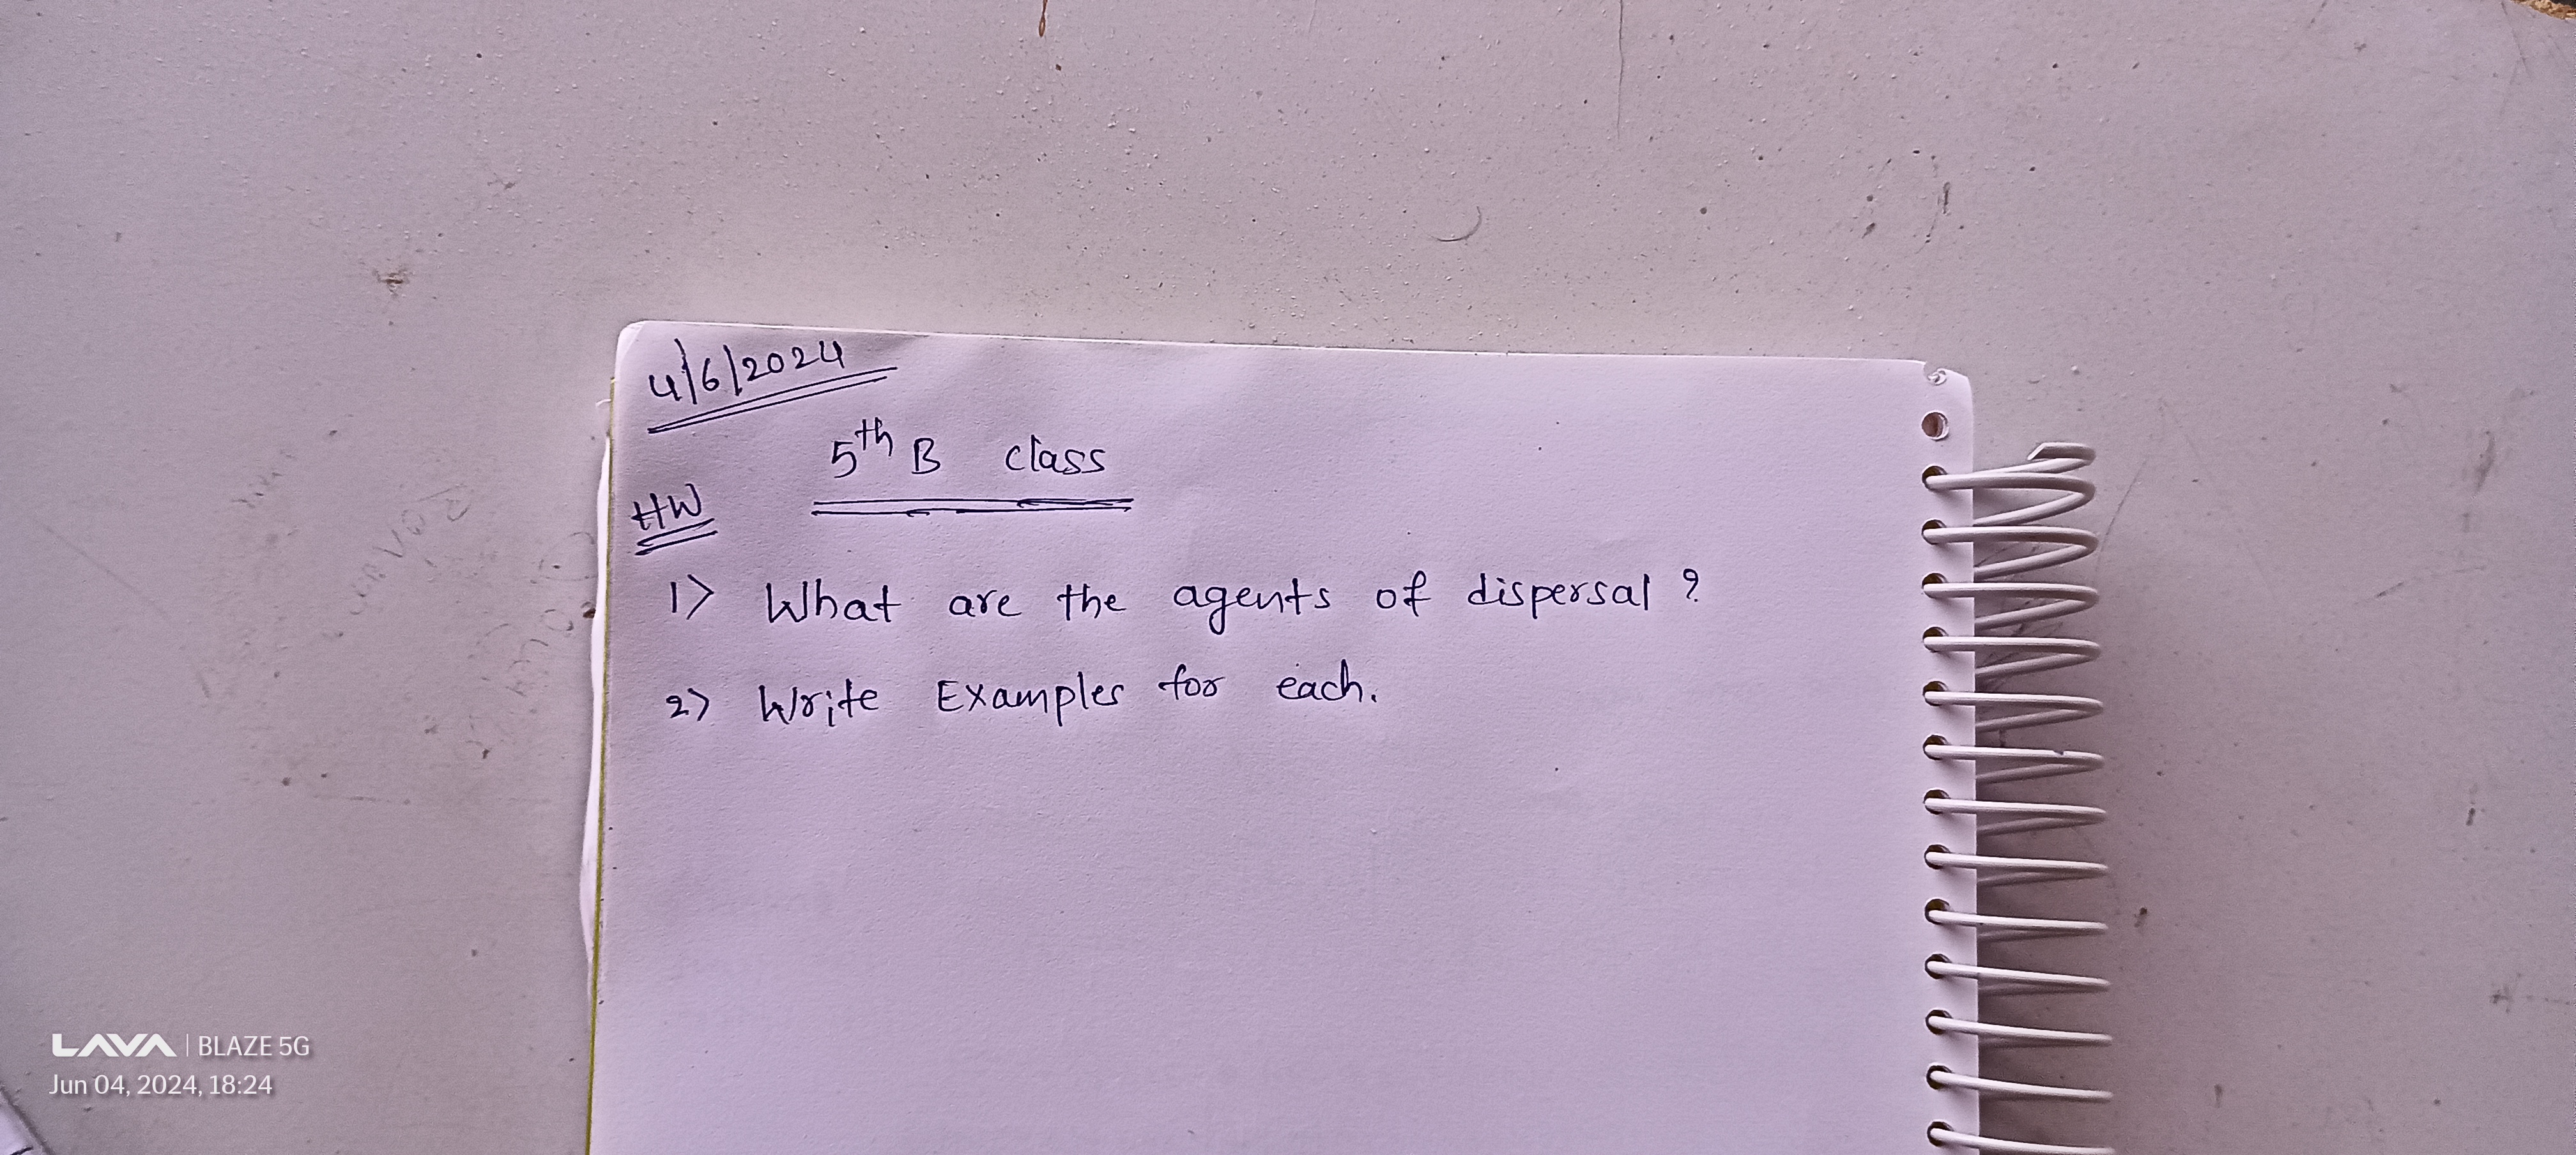 4/6/2024
5th B class
HW
1> What are the agents of dispersal ?
2> Write Examples for each.
LAVA | BLAZE 5G
Jun 04, 2024, 18:24